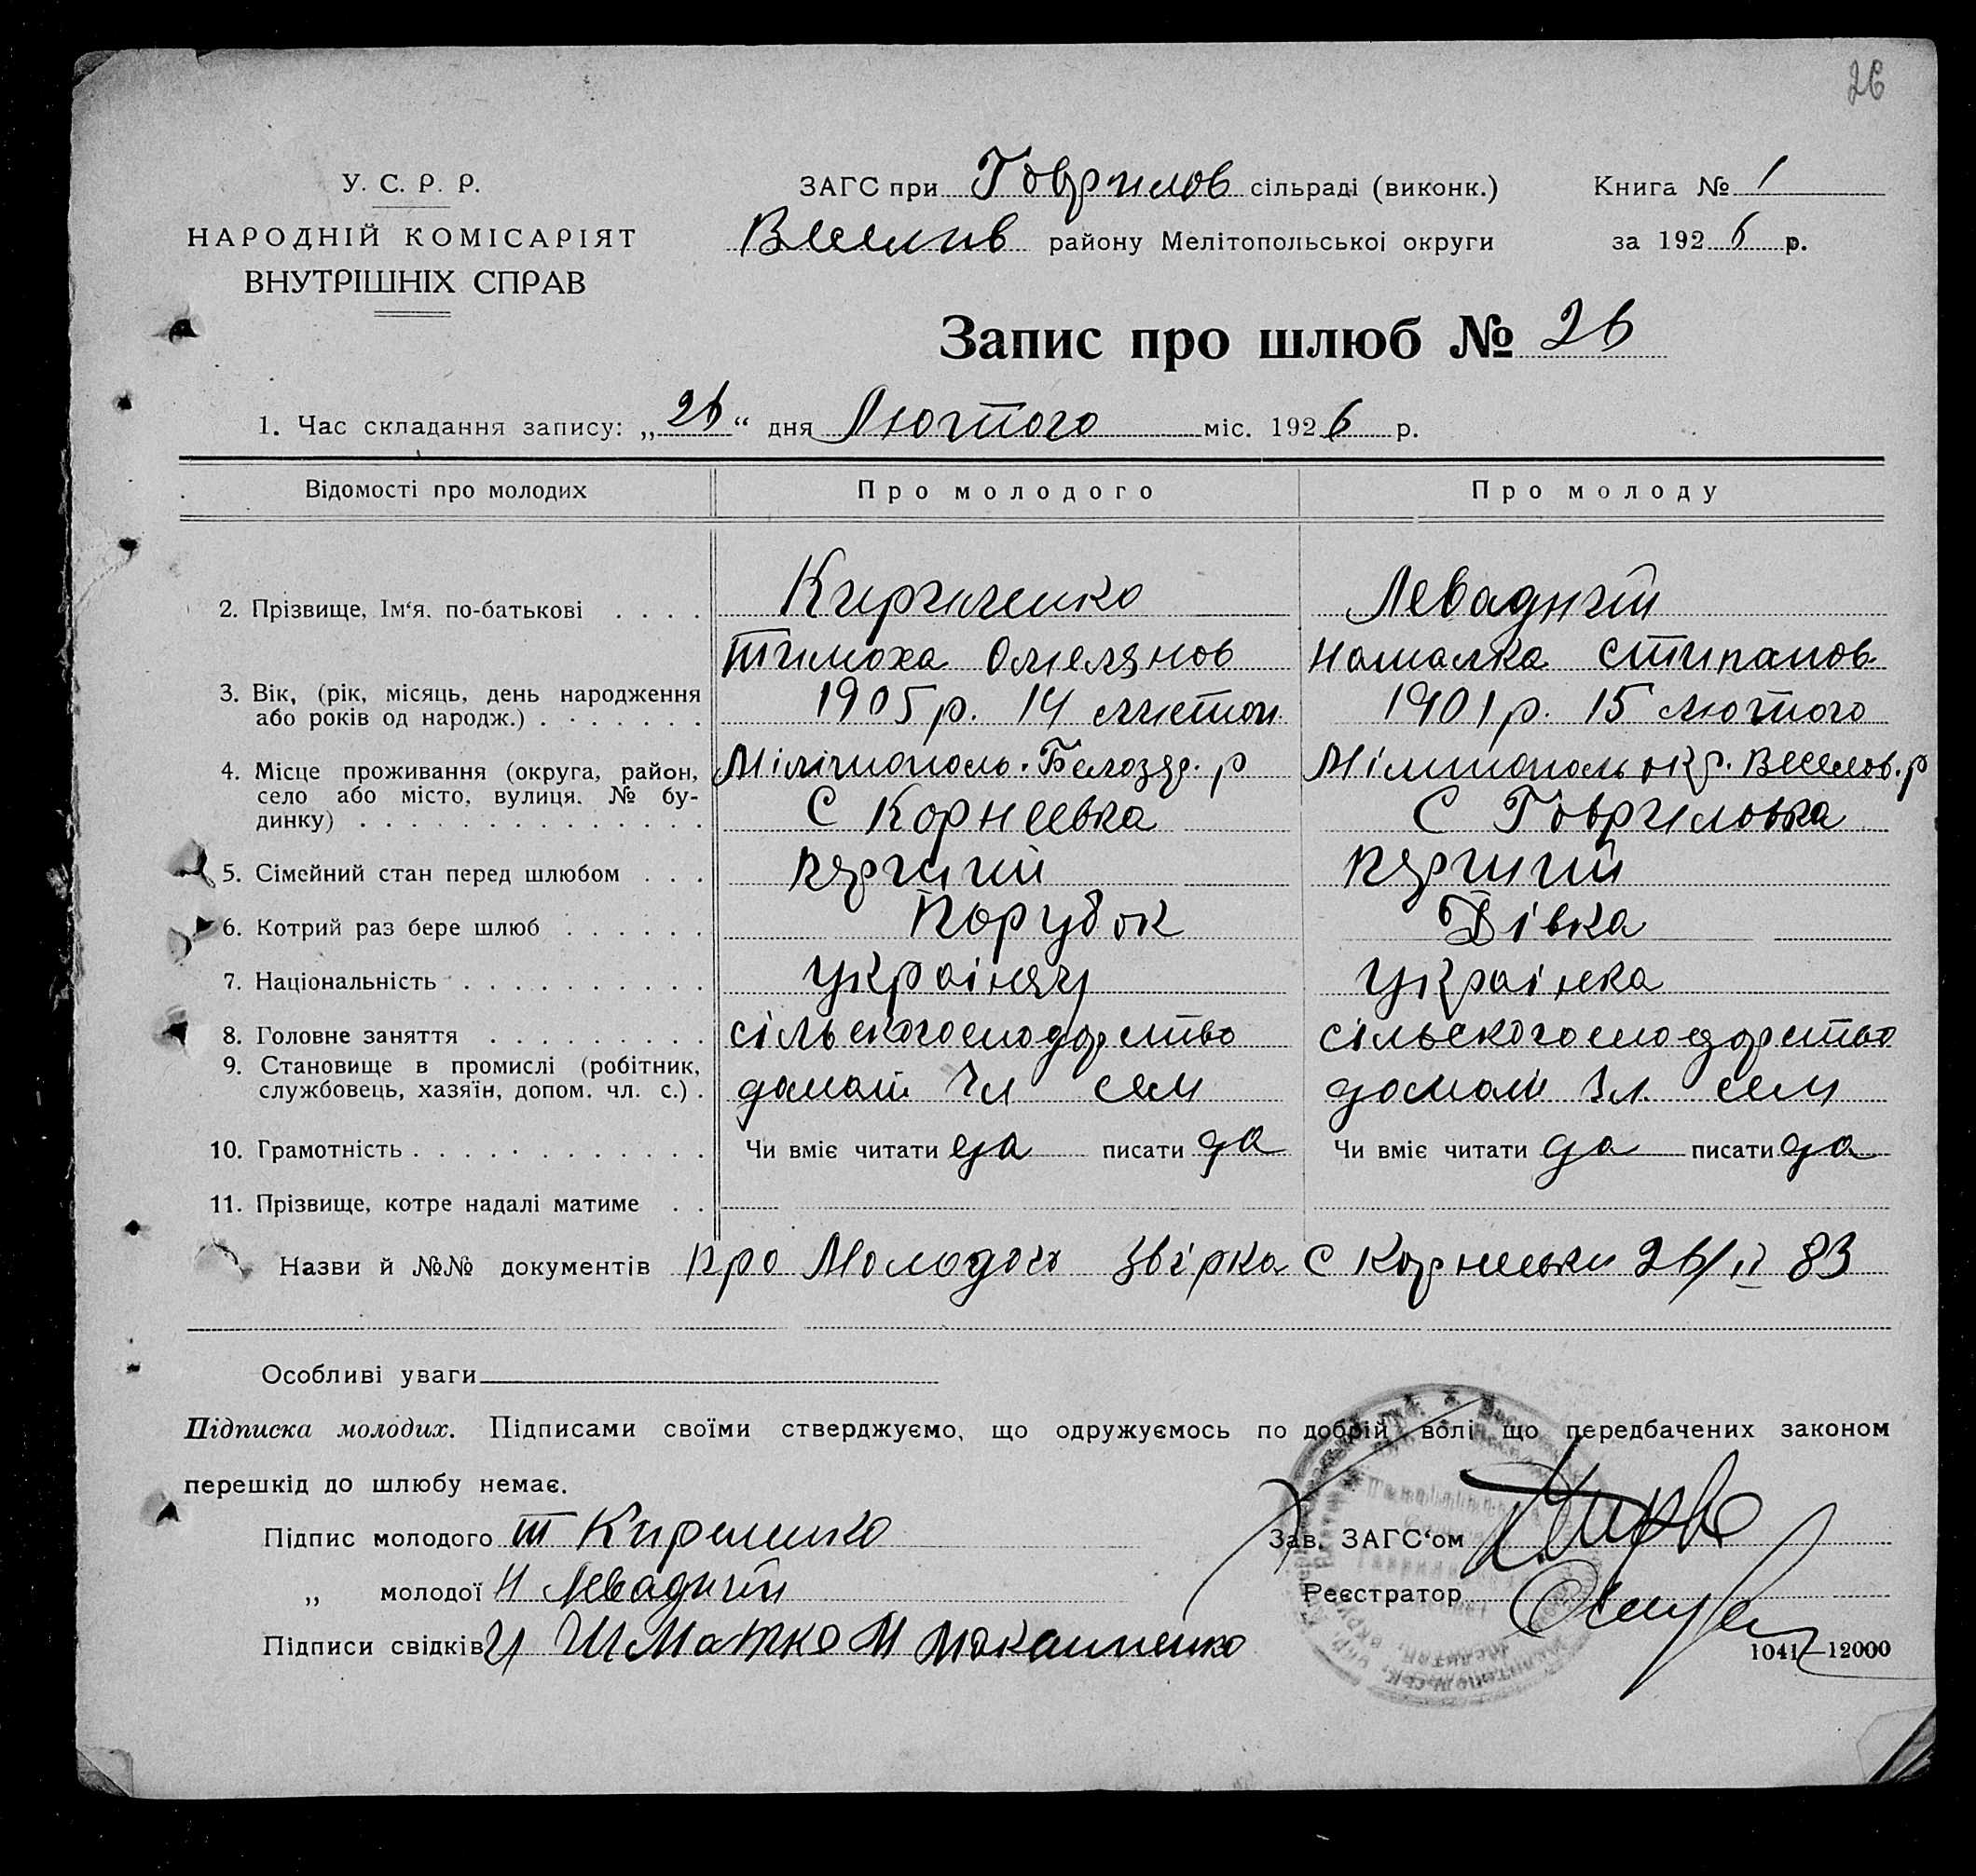 26
У. С. Р. Р.
НАРОДНІЙ КОМІСАРІЯТ
ВНУТРІШНІХ СПРАВ
ЗАГС при Говрилов сільраді (виконк.)
Веселив району Мелітопольської округи
Книга № 1
за 1926 р.
Запис про шлюб № 26
1. Час складання запису: „26“ дня Лютого міс. 1926 р.
Відомості про молодих
Про молодого
Про молоду
2. Прізвище, Ім‘я. по-батькові . . . .
Кириченко
Левадний
Тимоха Омелянов
Наталка Стипанов
3. Вік, (рік, місяць, день народження
або років од народж.) . . . . . . .
1905 р. 14 листоп.
1901 р. 15 лютого
4. Місце проживання (округа, район,
село або місто, вулиця. № бу-
динку) . . . . . . . . . . . . . .
Мілітополь. Белозяр. р
С Корнеевка
Мілитополь окр. Веселов. р
С Говриловка
5. Сімейний стан перед шлюбом . . .
пярший
пярший
6. Котрий раз бере шлюб . . . . . .
Порубок
Дівка
7. Національність . . . . . . . . . .
україняц
українка
8. Головне заняття . . . . . . . . .
сільскогосподорство
сільскогосподорство
9. Становище в промислі (робітник,
службовець, хазяїн, допом. чл. с.) .
домаш чл сем
домаш чл. сем
10. Грамотність . . . . . . . . . . . .
Чи вміє читати да писати да
Чи вміє читати да писати да
11. Прізвище, котре надалі матиме . .
Назви й №№ документів про Молодого Звірка С Корнеевки 26/II 83
Особливі уваги
Підписка молодих. Підписами своїми стверджуємо, що одружуємось по добрій волі що передбачених законом
перешкід до шлюбу немає.
Підпис молодого Т Кириченко
„ молодої Н Левадний
Підписи свідків И Шматко М Мокаштенко
Зав. ЗАГС‘ом
Реєстратор
1041—12000